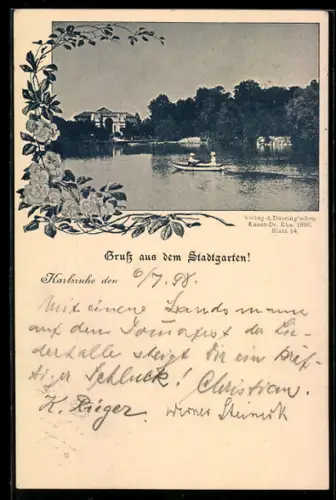 Verlag d. Doering'schen
Kunst-Dr. Kha. 1898.
Blatt 14.
Gruß aus dem Stadtgarten!
Karlsruhe den 6/7. 98.
Mit einem Landsmanne
auf dem Sommerfest der Lie-
derhalle steigt Dir ein kräf-
tiger Schluck! Christian.
K. Rieger. Werner